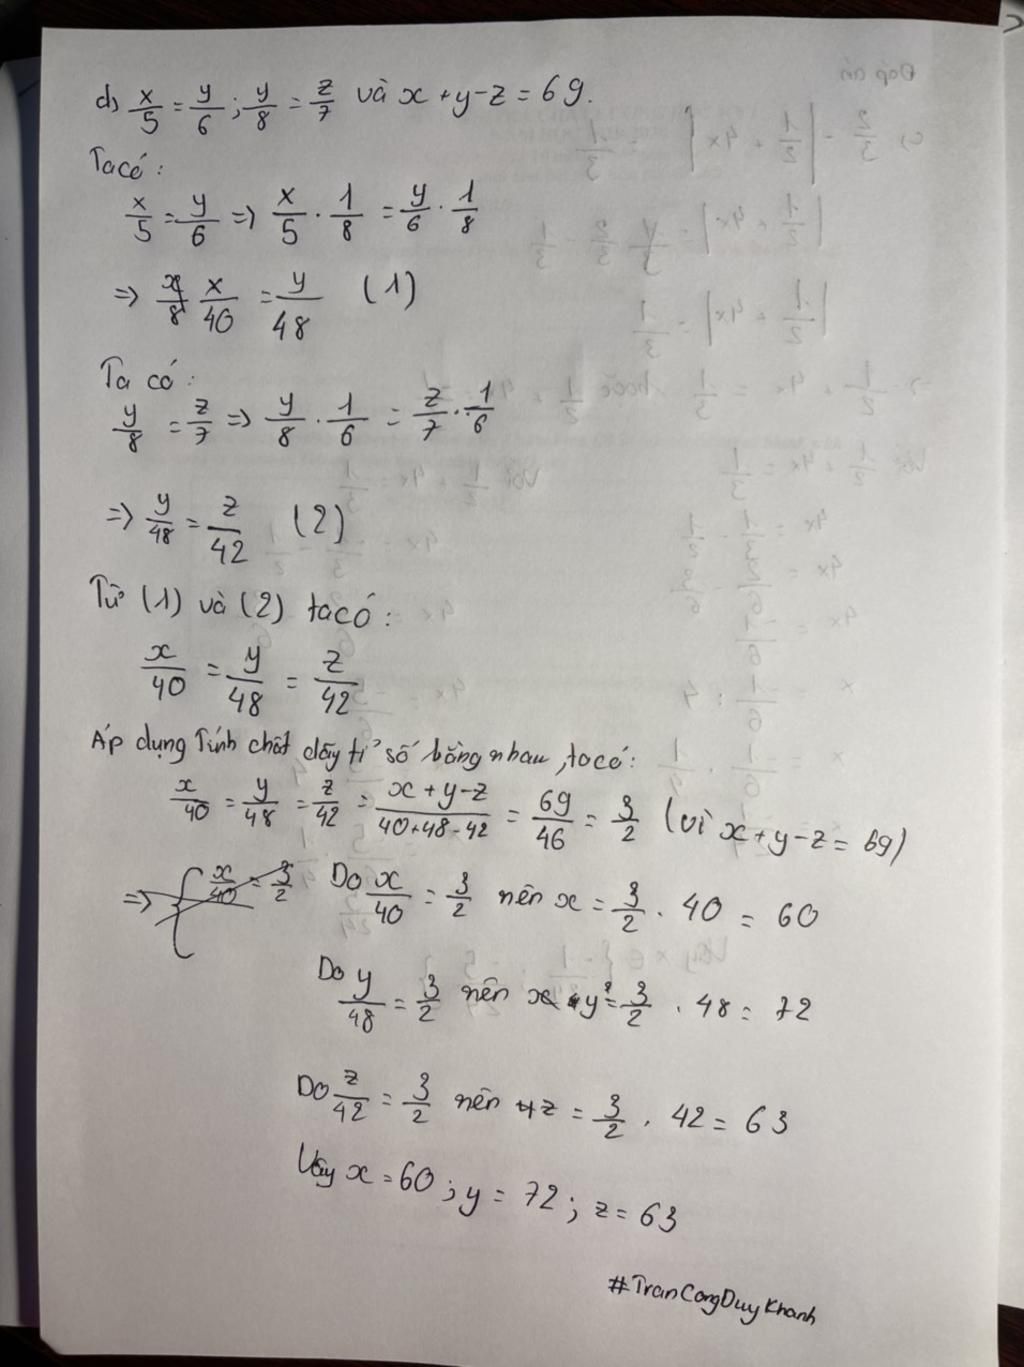 d) x/5 = y/6 ; y/8 = z/7 và x + y - z = 69.
Ta có :
x/5 = y/6 => x/5 . 1/8 = y/6 . 1/8
=> x/40 = y/48 (1)
Ta có :
y/8 = z/7 => y/8 . 1/6 = z/7 . 1/6
=> y/48 = z/42 (2)
Từ (1) và (2) ta có :
x/40 = y/48 = z/42
Áp dụng Tính chất dãy tỉ số bằng nhau , ta có :
x/40 = y/48 = z/42 = x + y - z/40+48-42 = 69/46 = 3/2 (vì x + y - z = 69)
=> { x/40 = 3/2 Do x/40 = 3/2 nên x = 3/2 . 40 = 60
Do y/48 = 3/2 nên y = 3/2 . 48 = 72
Do z/42 = 3/2 nên z = 3/2 . 42 = 63
Vậy x = 60 ; y = 72 ; z = 63
#TranCongDuyKhanh